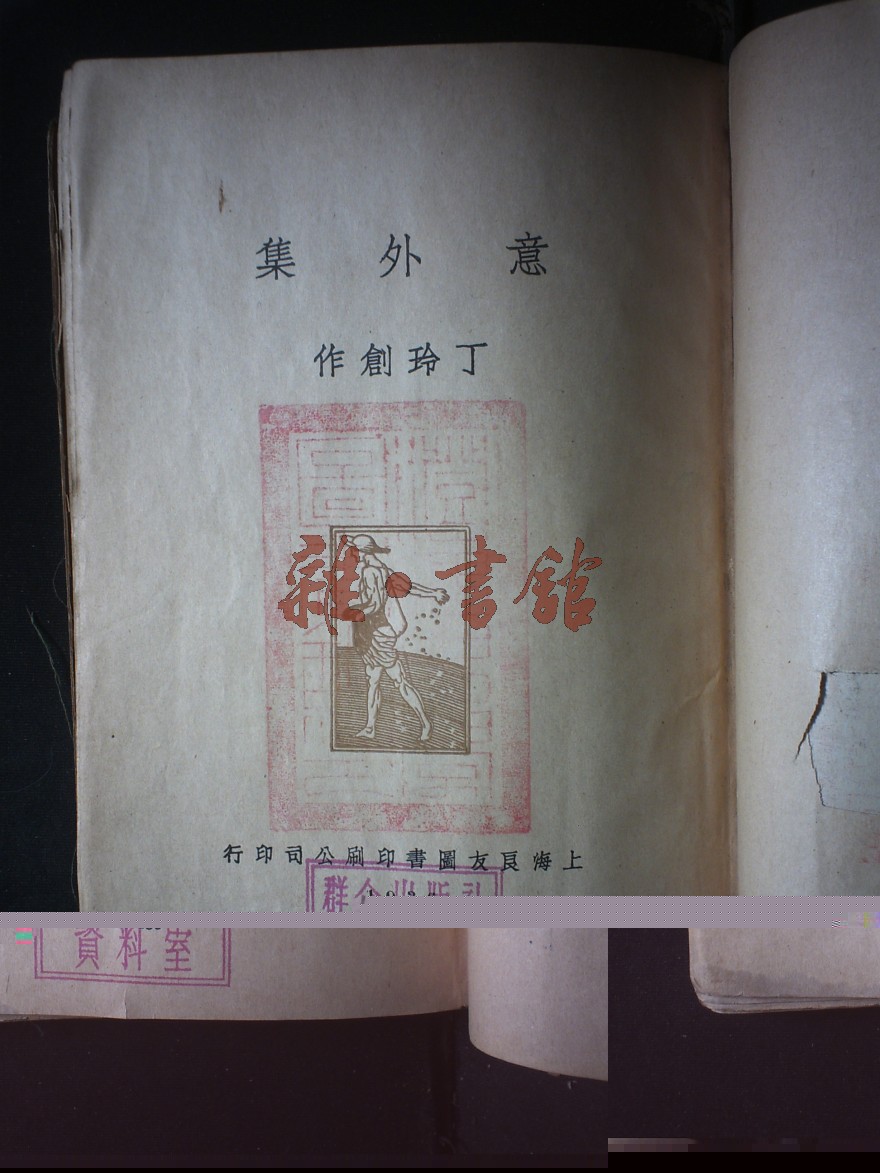 意外集
丁玲創作
雜·書館
上海良友圖書印刷公司印行
群众出版社
資料室